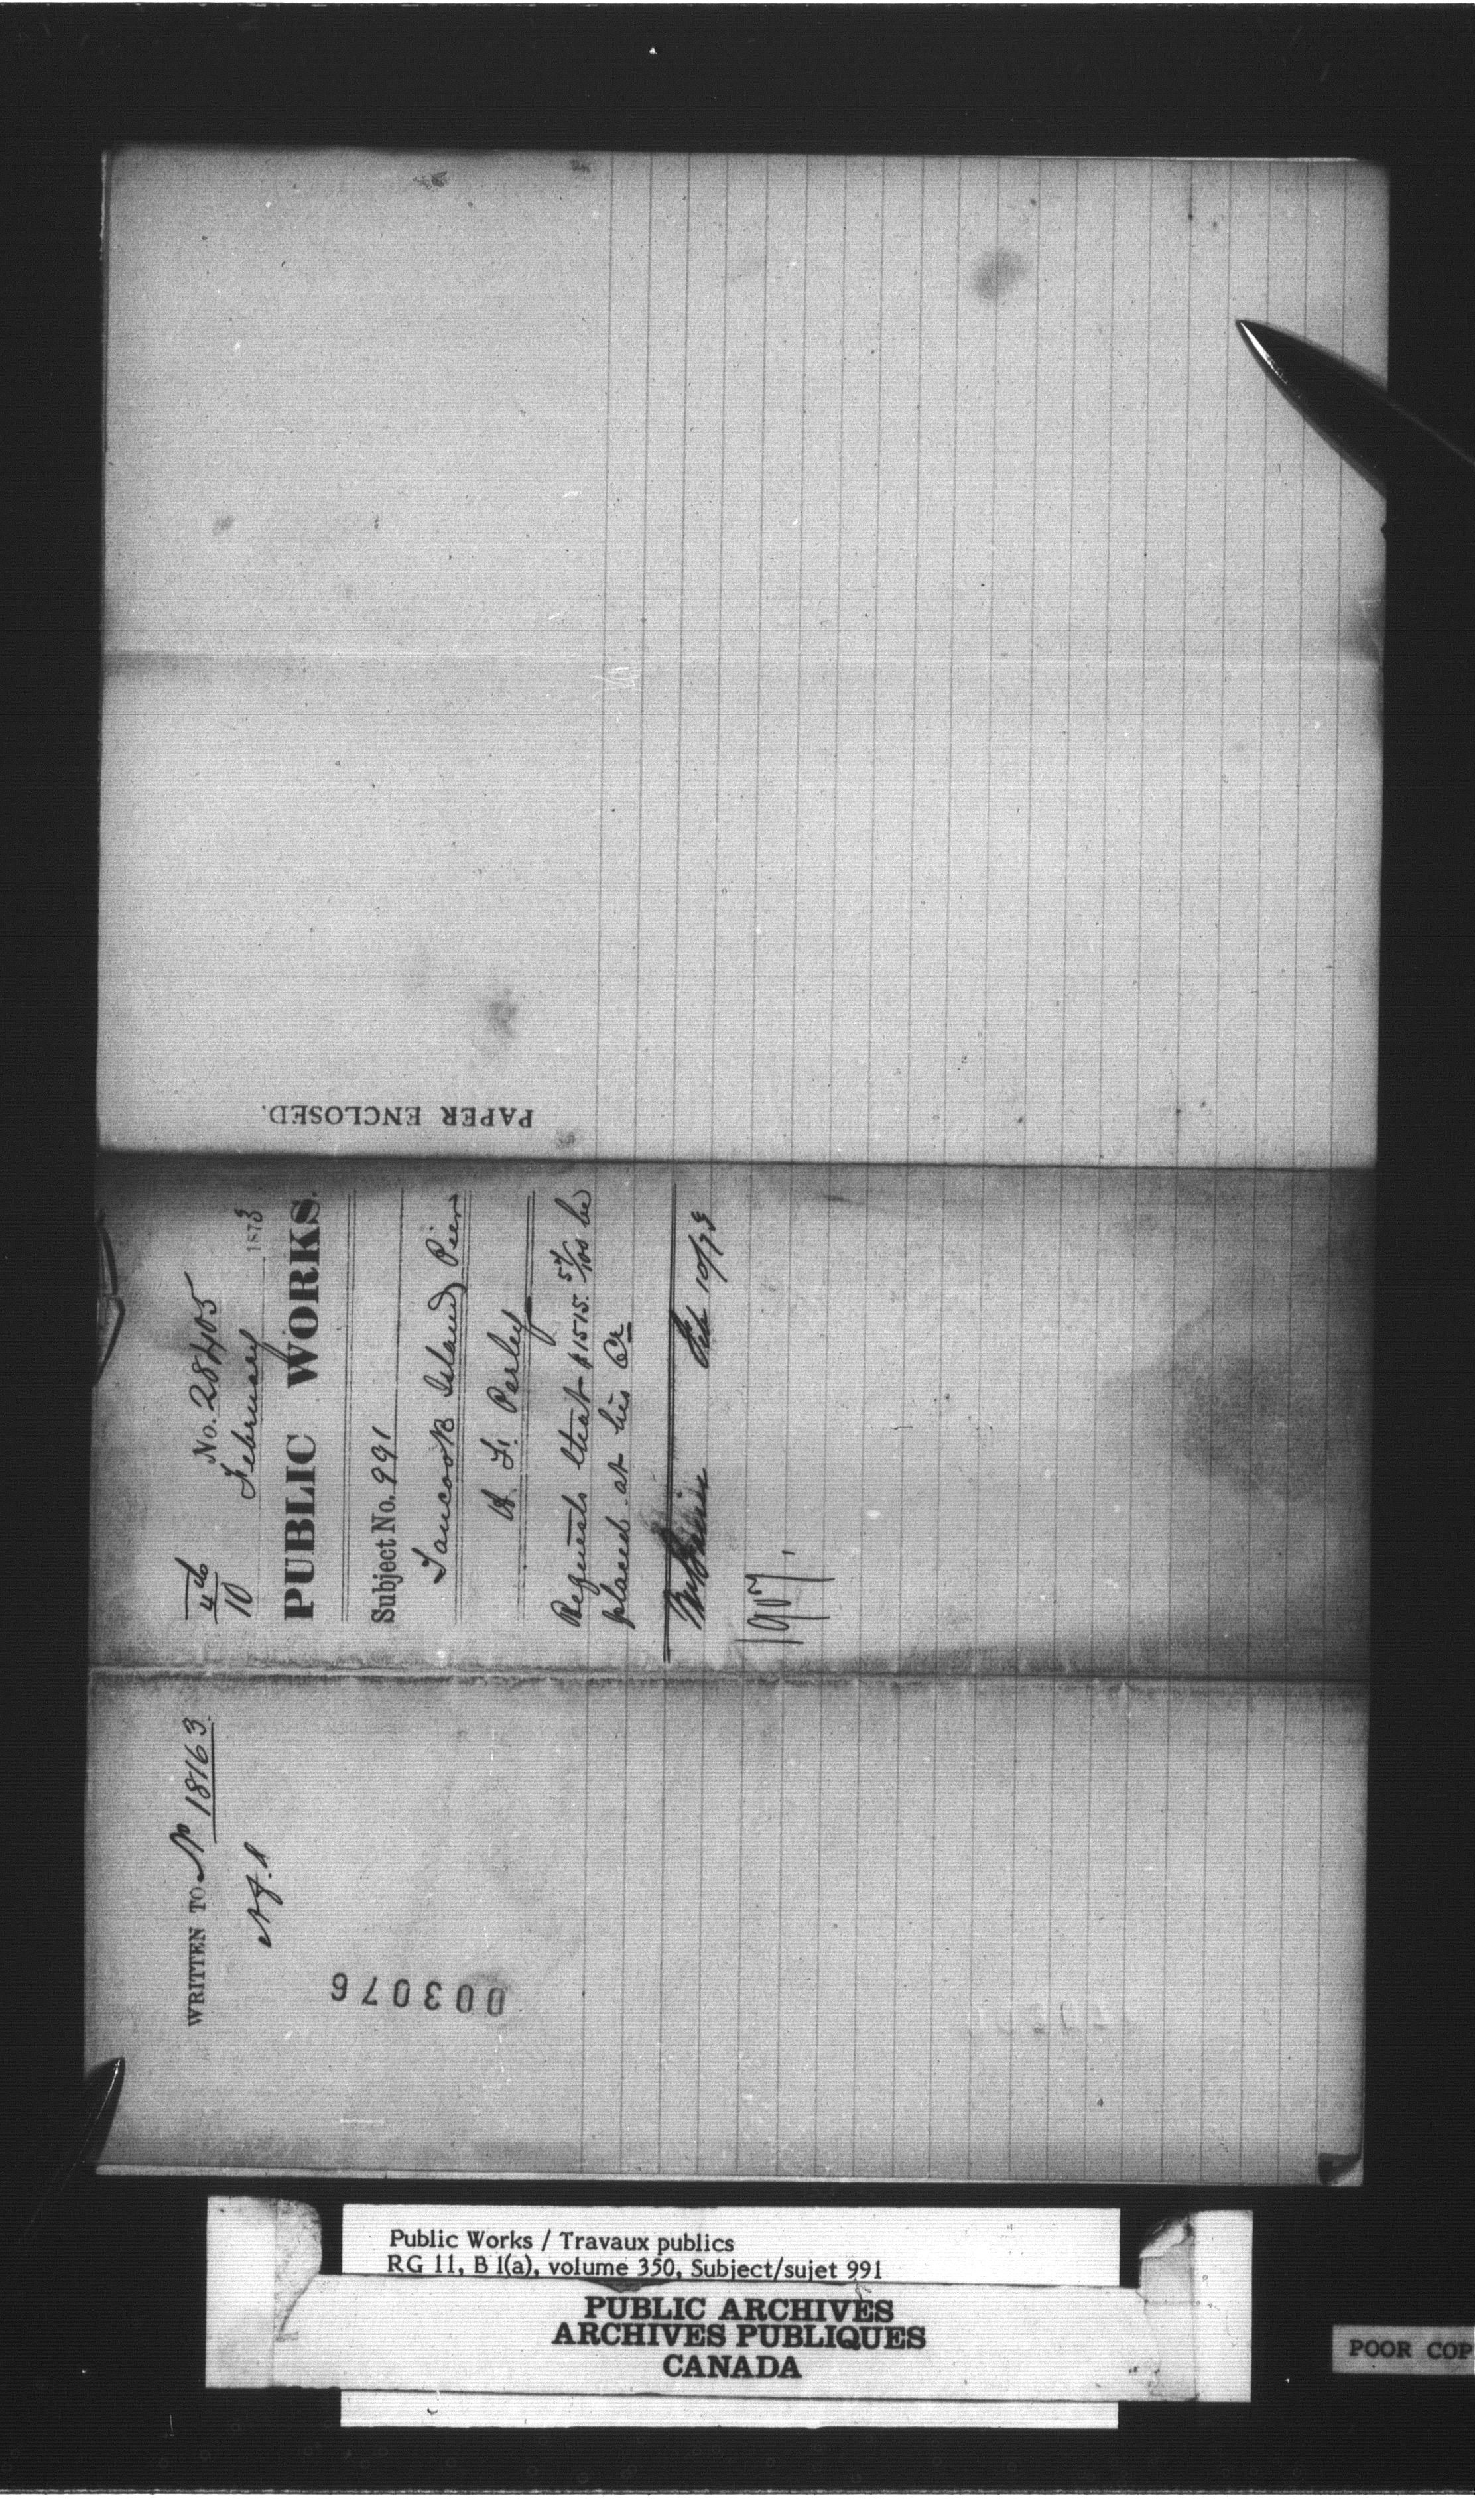 PAPER ENCLOSED.
4th
10
No. 28405
February 1873
PUBLIC WORKS.
Subject No. 991
Tancook Island Pier
H. F. Perley
Requests that $1515. 57/100 be
placed at his Cr
Feb 10/73
1907
WRITTEN TO No 18163
003076
Public Works / Travaux publics
RG 11, B 1(a), volume 350, Subject/sujet 991
PUBLIC ARCHIVES
ARCHIVES PUBLIQUES
CANADA
POOR COP